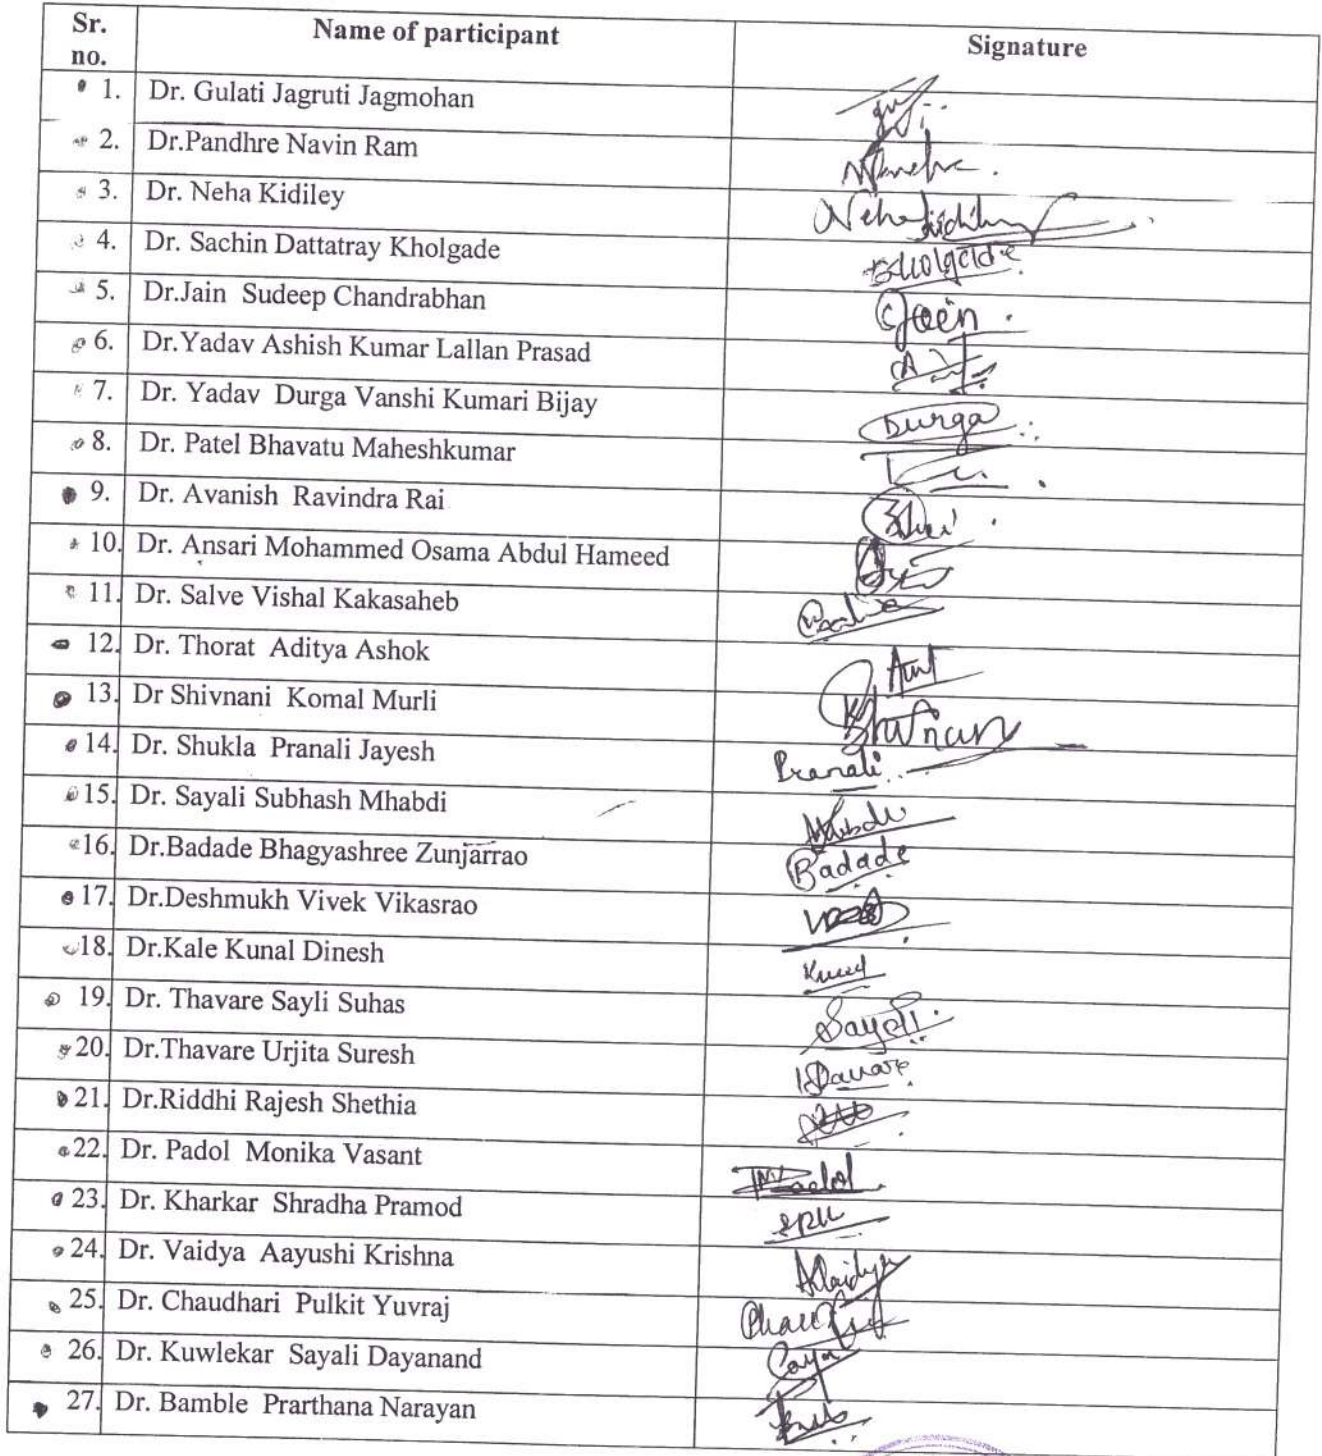 Sr. no. Name of participant Signature
1. Dr. Gulati Jagruti Jagmohan
2. Dr.Pandhre Navin Ram
3. Dr. Neha Kidiley Neha
4. Dr. Sachin Dattatray Kholgade Kholgade
5. Dr.Jain Sudeep Chandrabhan Jain
6. Dr.Yadav Ashish Kumar Lallan Prasad
7. Dr. Yadav Durga Vanshi Kumari Bijay Durga
8. Dr. Patel Bhavatu Maheshkumar
9. Dr. Avanish Ravindra Rai
10. Dr. Ansari Mohammed Osama Abdul Hameed
11. Dr. Salve Vishal Kakasaheb
12. Dr. Thorat Aditya Ashok
13. Dr Shivnani Komal Murli
14. Dr. Shukla Pranali Jayesh Pranali
15. Dr. Sayali Subhash Mhabdi
16. Dr.Badade Bhagyashree Zunjarrao Badade
17. Dr.Deshmukh Vivek Vikasrao
18. Dr.Kale Kunal Dinesh
19. Dr. Thavare Sayli Suhas
20. Dr.Thavare Urjita Suresh
21. Dr.Riddhi Rajesh Shethia
22. Dr. Padol Monika Vasant
23. Dr. Kharkar Shradha Pramod
24. Dr. Vaidya Aayushi Krishna
25. Dr. Chaudhari Pulkit Yuvraj
26. Dr. Kuwlekar Sayali Dayanand
27. Dr. Bamble Prarthana Narayan